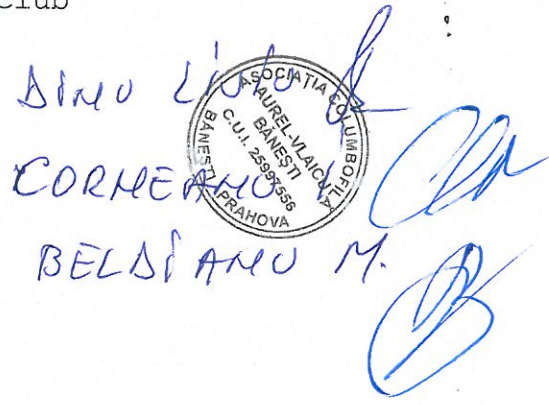 Club
DINU LIVIU
CORNEANU
BELDIANU M.
ASOCIATIA COLUMBOFILA
"AUREL-VLAICU"
BĂNEȘTI
C.U.I. 25997556
BĂNEȘTI PRAHOVA